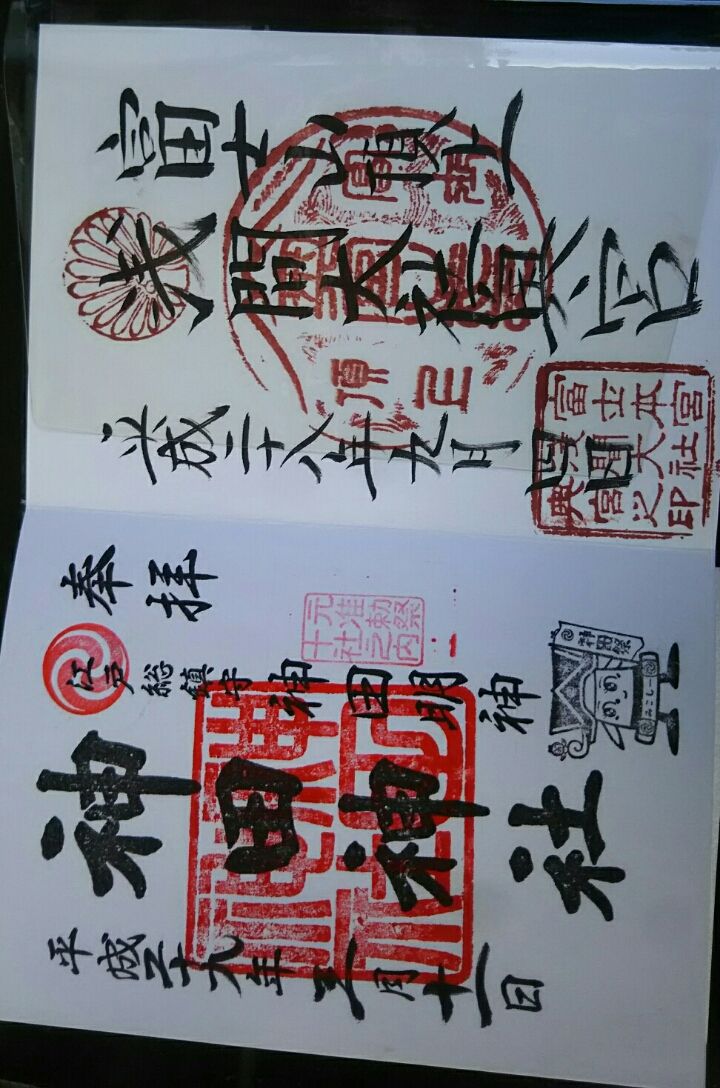 富士山頂上
浅間大社奥宮
平成二十八年九月四日
富士本宮
浅間大社
奥宮之印
奉拝
元准勅祭
十社之内
江戸総鎮守神田明神
神田祭
みこしー
神田神社
平成二十九年三月十一日